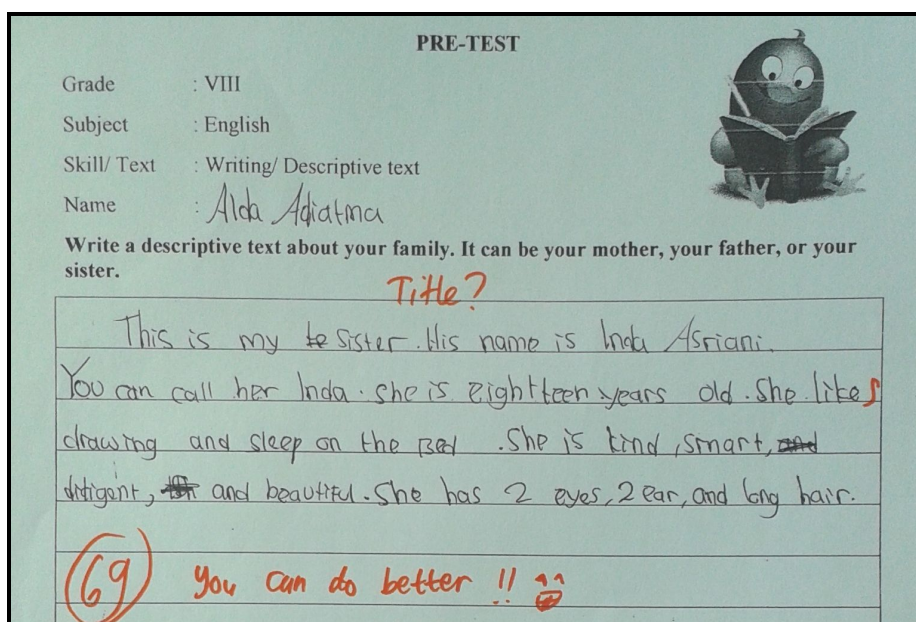 PRE-TEST
Grade : VIII
Subject : English
Skill/ Text : Writing/ Descriptive text
Name : Alda Adiatma
Write a descriptive text about your family. It can be your mother, your father, or your
sister.
Title?
This is my sister. His name is Inda Asriani.
You can call her Inda. She is Eighteen years old. She likes
drawing and sleep on the Bed. She is kind, smart, and
ditigent, and beautiful. She has 2 eyes, 2 ear, and long hair.
69 You can do better !!